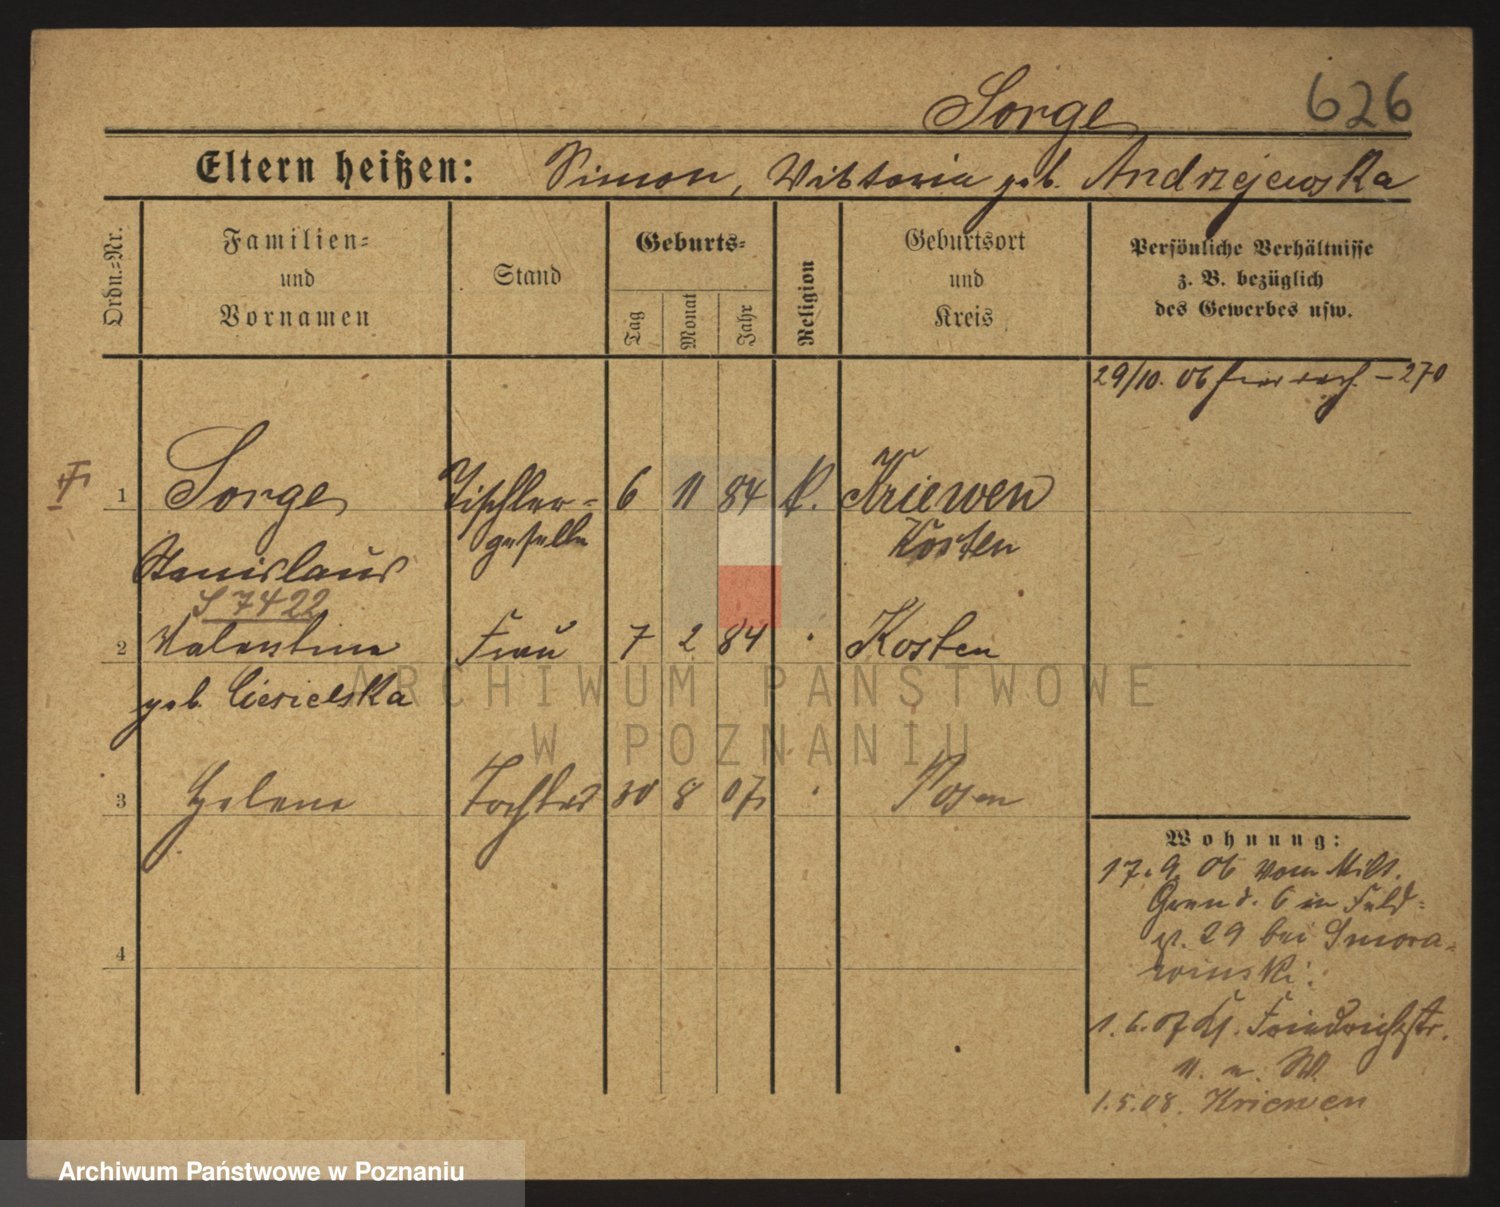 Sorge 626
Eltern heißen: Simon, Viktoria geb. Andrzejewska
Ordn.-Nr.
Familien-
und
Vornamen
Stand
Geburts-
Tag
Monat
Jahr
Religion
Geburtsort
und
Kreis
Persönliche Verhältnisse
z. B. bezüglich
des Gewerbes usw.
29/10. 06 - 270
1 Sorge Tischler- 6 11 84 k. Kriewen
geselle Kosten
Stanislaus
S 7422
2 Valentina Frau 7 2 84 Kosten
geb. Ciesielska
3 Helene Tochter 30 8 07 Posen
4
Wohnung:
17. 9. 06 vom Milt.
6 in Feld-
29 bei Smora-
winski.
1. 6. 07 Kl. Friedrichstr.
11. n. W.
1. 5. 08. Kriewen
ARCHIWUM PAŃSTWOWE
W POZNANIU
Archiwum Państwowe w Poznaniu